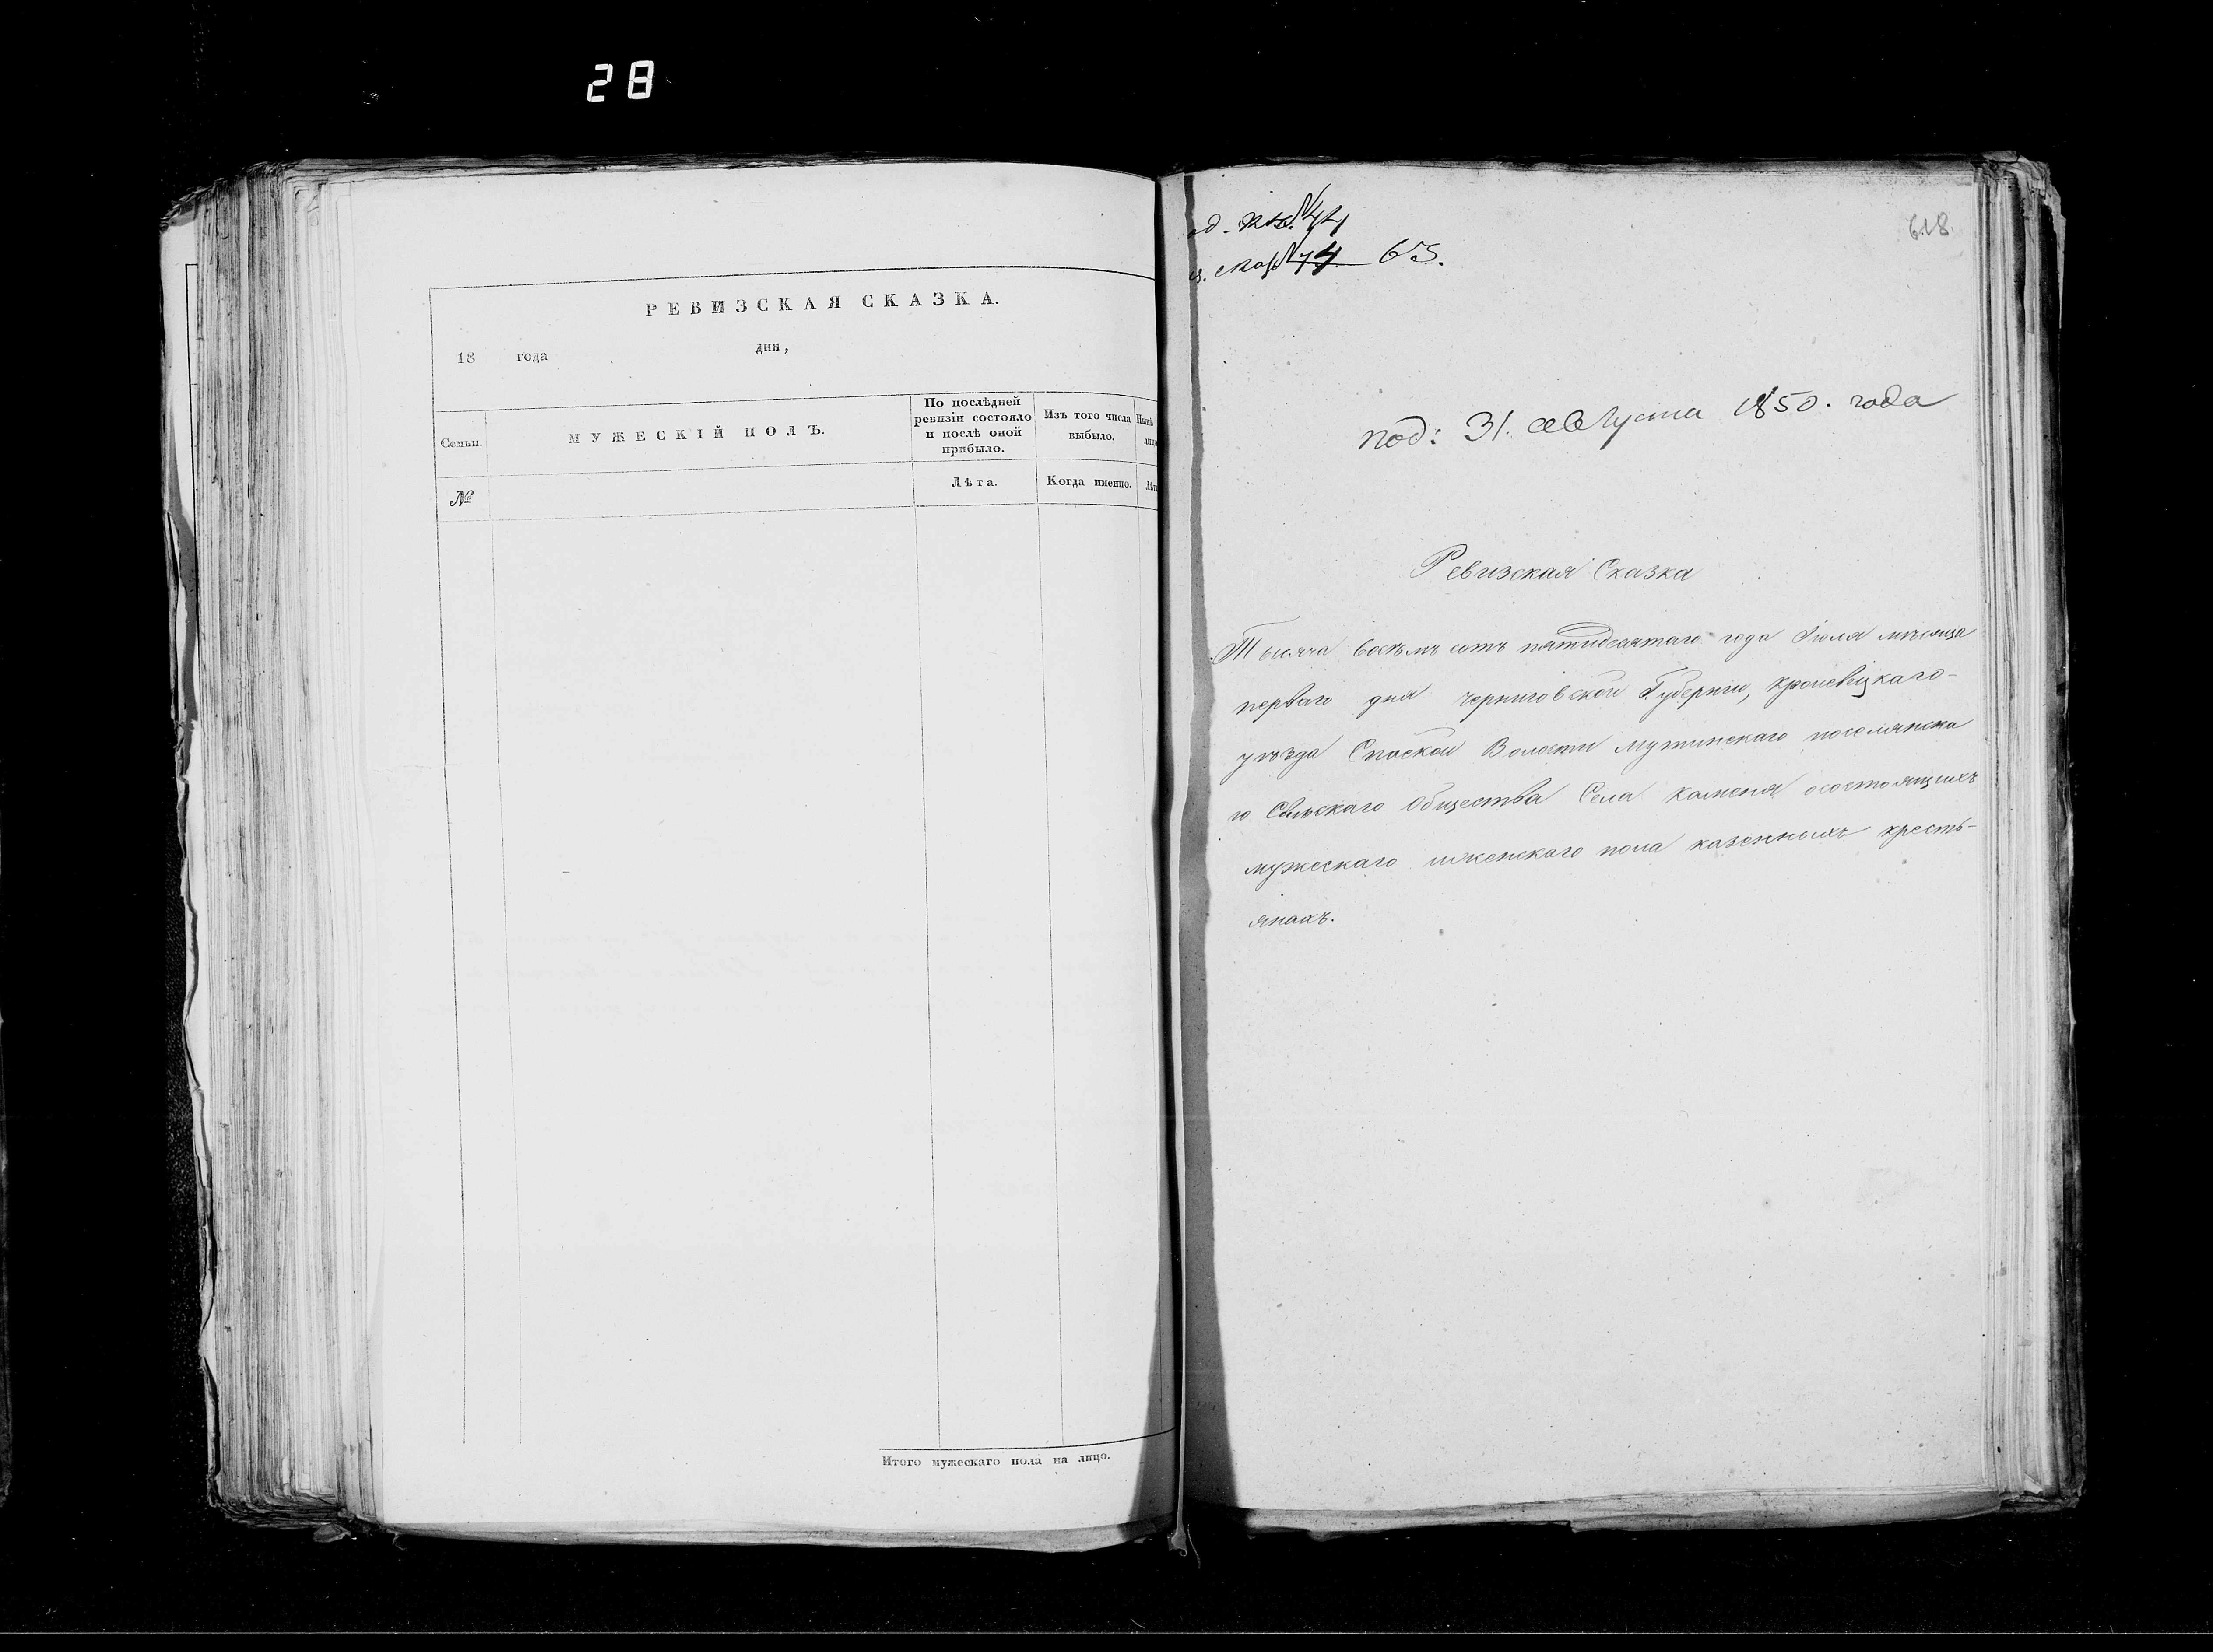 28
РЕВИЗСКАЯ СКАЗКА.
18 года дня,
Семьи.
МУЖЕСКІЙ ПОЛЪ.
По послѣдней
ревизіи состояло
и послѣ оной
прибыло.
Изъ того числа
выбыло.
№
Лѣта.
Когда именно.
Итого мужескаго пола на лицо.
№ 44
65.
618.
под: 31. августа 1850. года
Ревизская Сказка
Тысяча восѣмъ сотъ пятидесятаго года Іюля мѣсяца
перваго дня черниговской Губерніи, кролевецкаго-
уѣзда Спаской Волости мутинскаго поселянска
го Сельскаго Общества Села каменя осостоящихъ
мужескаго иженскаго пола казенныхъ кресть-
янахъ.